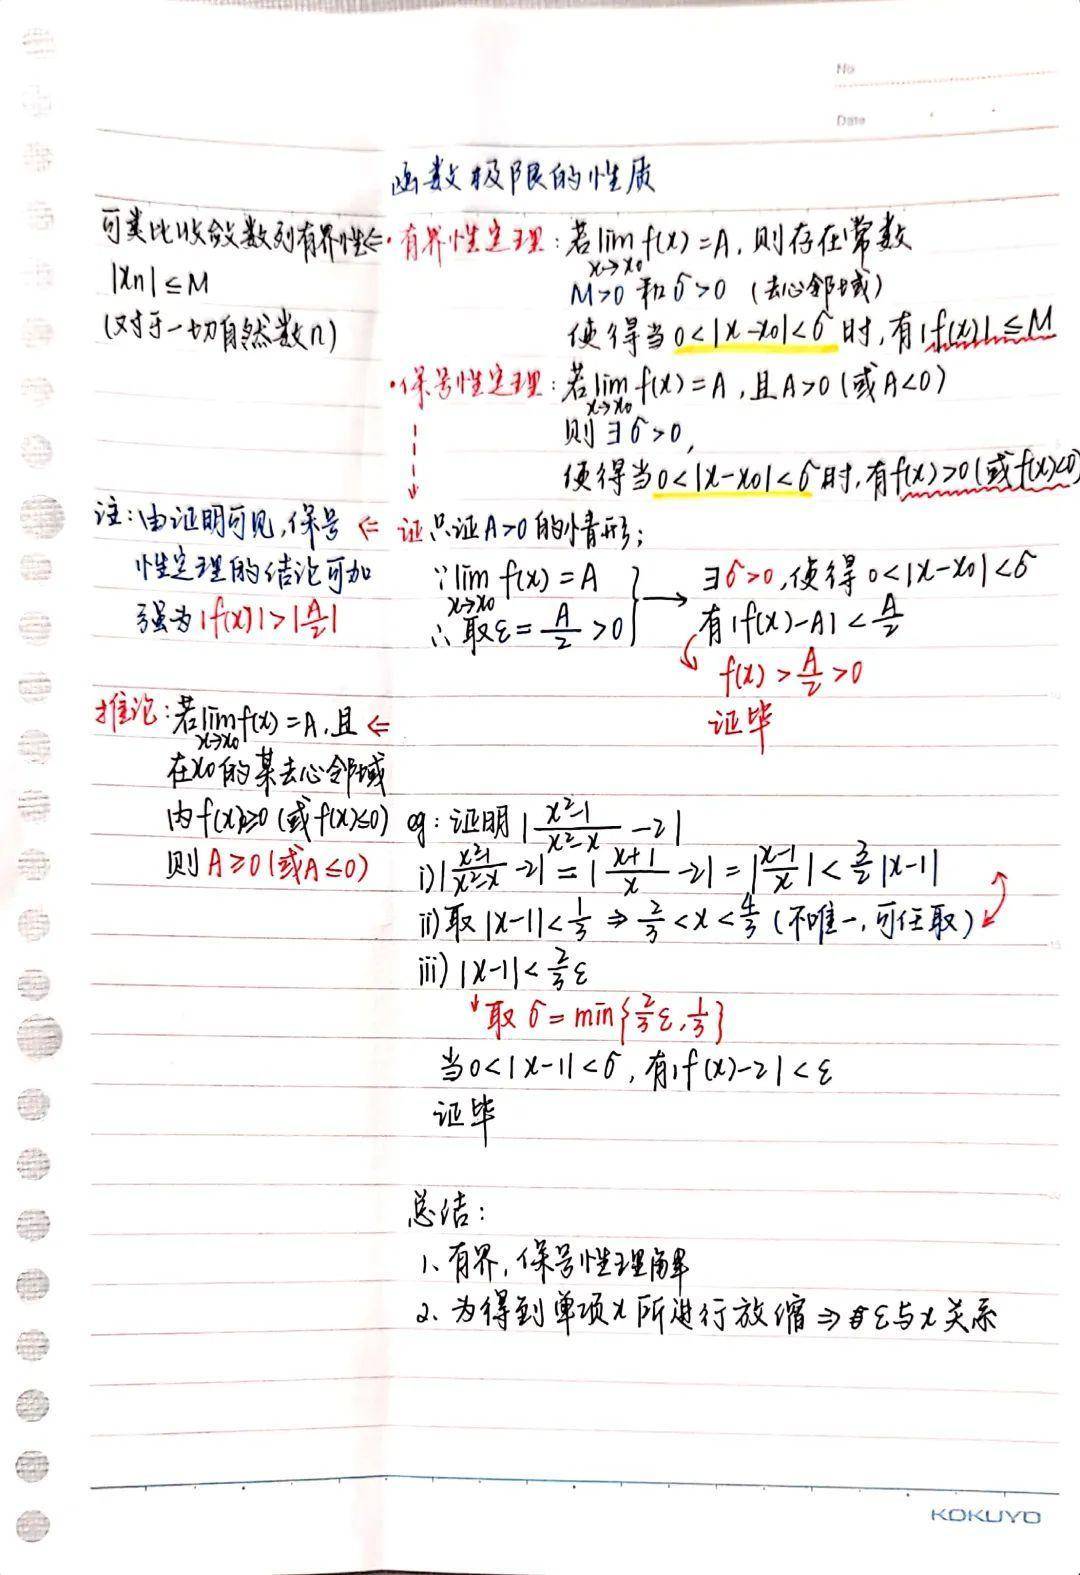 No
Date
函数极限的性质
可类比收敛数列有界性⇐
|xn|≤M
(对于一切自然数n)
·有界性定理:若lim f(x)=A,则存在常数
x→x0
M>0 和 δ>0 (去心邻域)
使得当 0<|x-x0|<δ 时,有|f(x)|≤M
·保号性定理:若lim f(x)=A,且A>0(或A<0)
x→x0
则∃δ>0,
使得当0<|x-x0|<δ时,有f(x)>0(或f(x)<0)
注:由证明可见,保号 ⇐
性定理的结论可加
强为|f(x)|>|A/2|
证:只证A>0的情形;
∵lim f(x)=A
x→x0
∴取ε=A/2>0
→ ∃δ>0,使得 0<|x-x0|<δ
有|f(x)-A|<A/2
f(x)>A/2>0
证毕
推论:若lim f(x)=A,且 ⇐
x→x0
在x0的某去心邻域
内f(x)≥0(或f(x)≤0)
则A≥0(或A≤0)
eg:证明|(x²-1)/(x²-x)-2|
i)|(x²-1)/(x²-x)-2|=|(x+1)/x-2|=|(x-1)/x|<3/2|x-1|
ii)取|x-1|<1/3⇒2/3<x<4/3(不唯一,可任取)
iii)|x-1|<2/3ε
↓取 δ=min{2/3ε,1/3}
当0<|x-1|<δ,有|f(x)-2|<ε
证毕
总结:
1、有界,保号性理解
2、为得到单项x所进行放缩⇒ε与x关系
KOKUYO